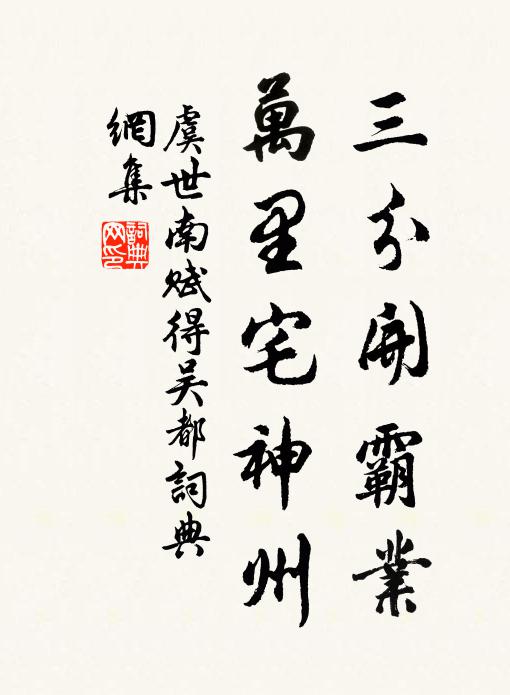 三分開霸業
萬里宅神州
虞世南賦得吴都詞典
網集
詞典
网印